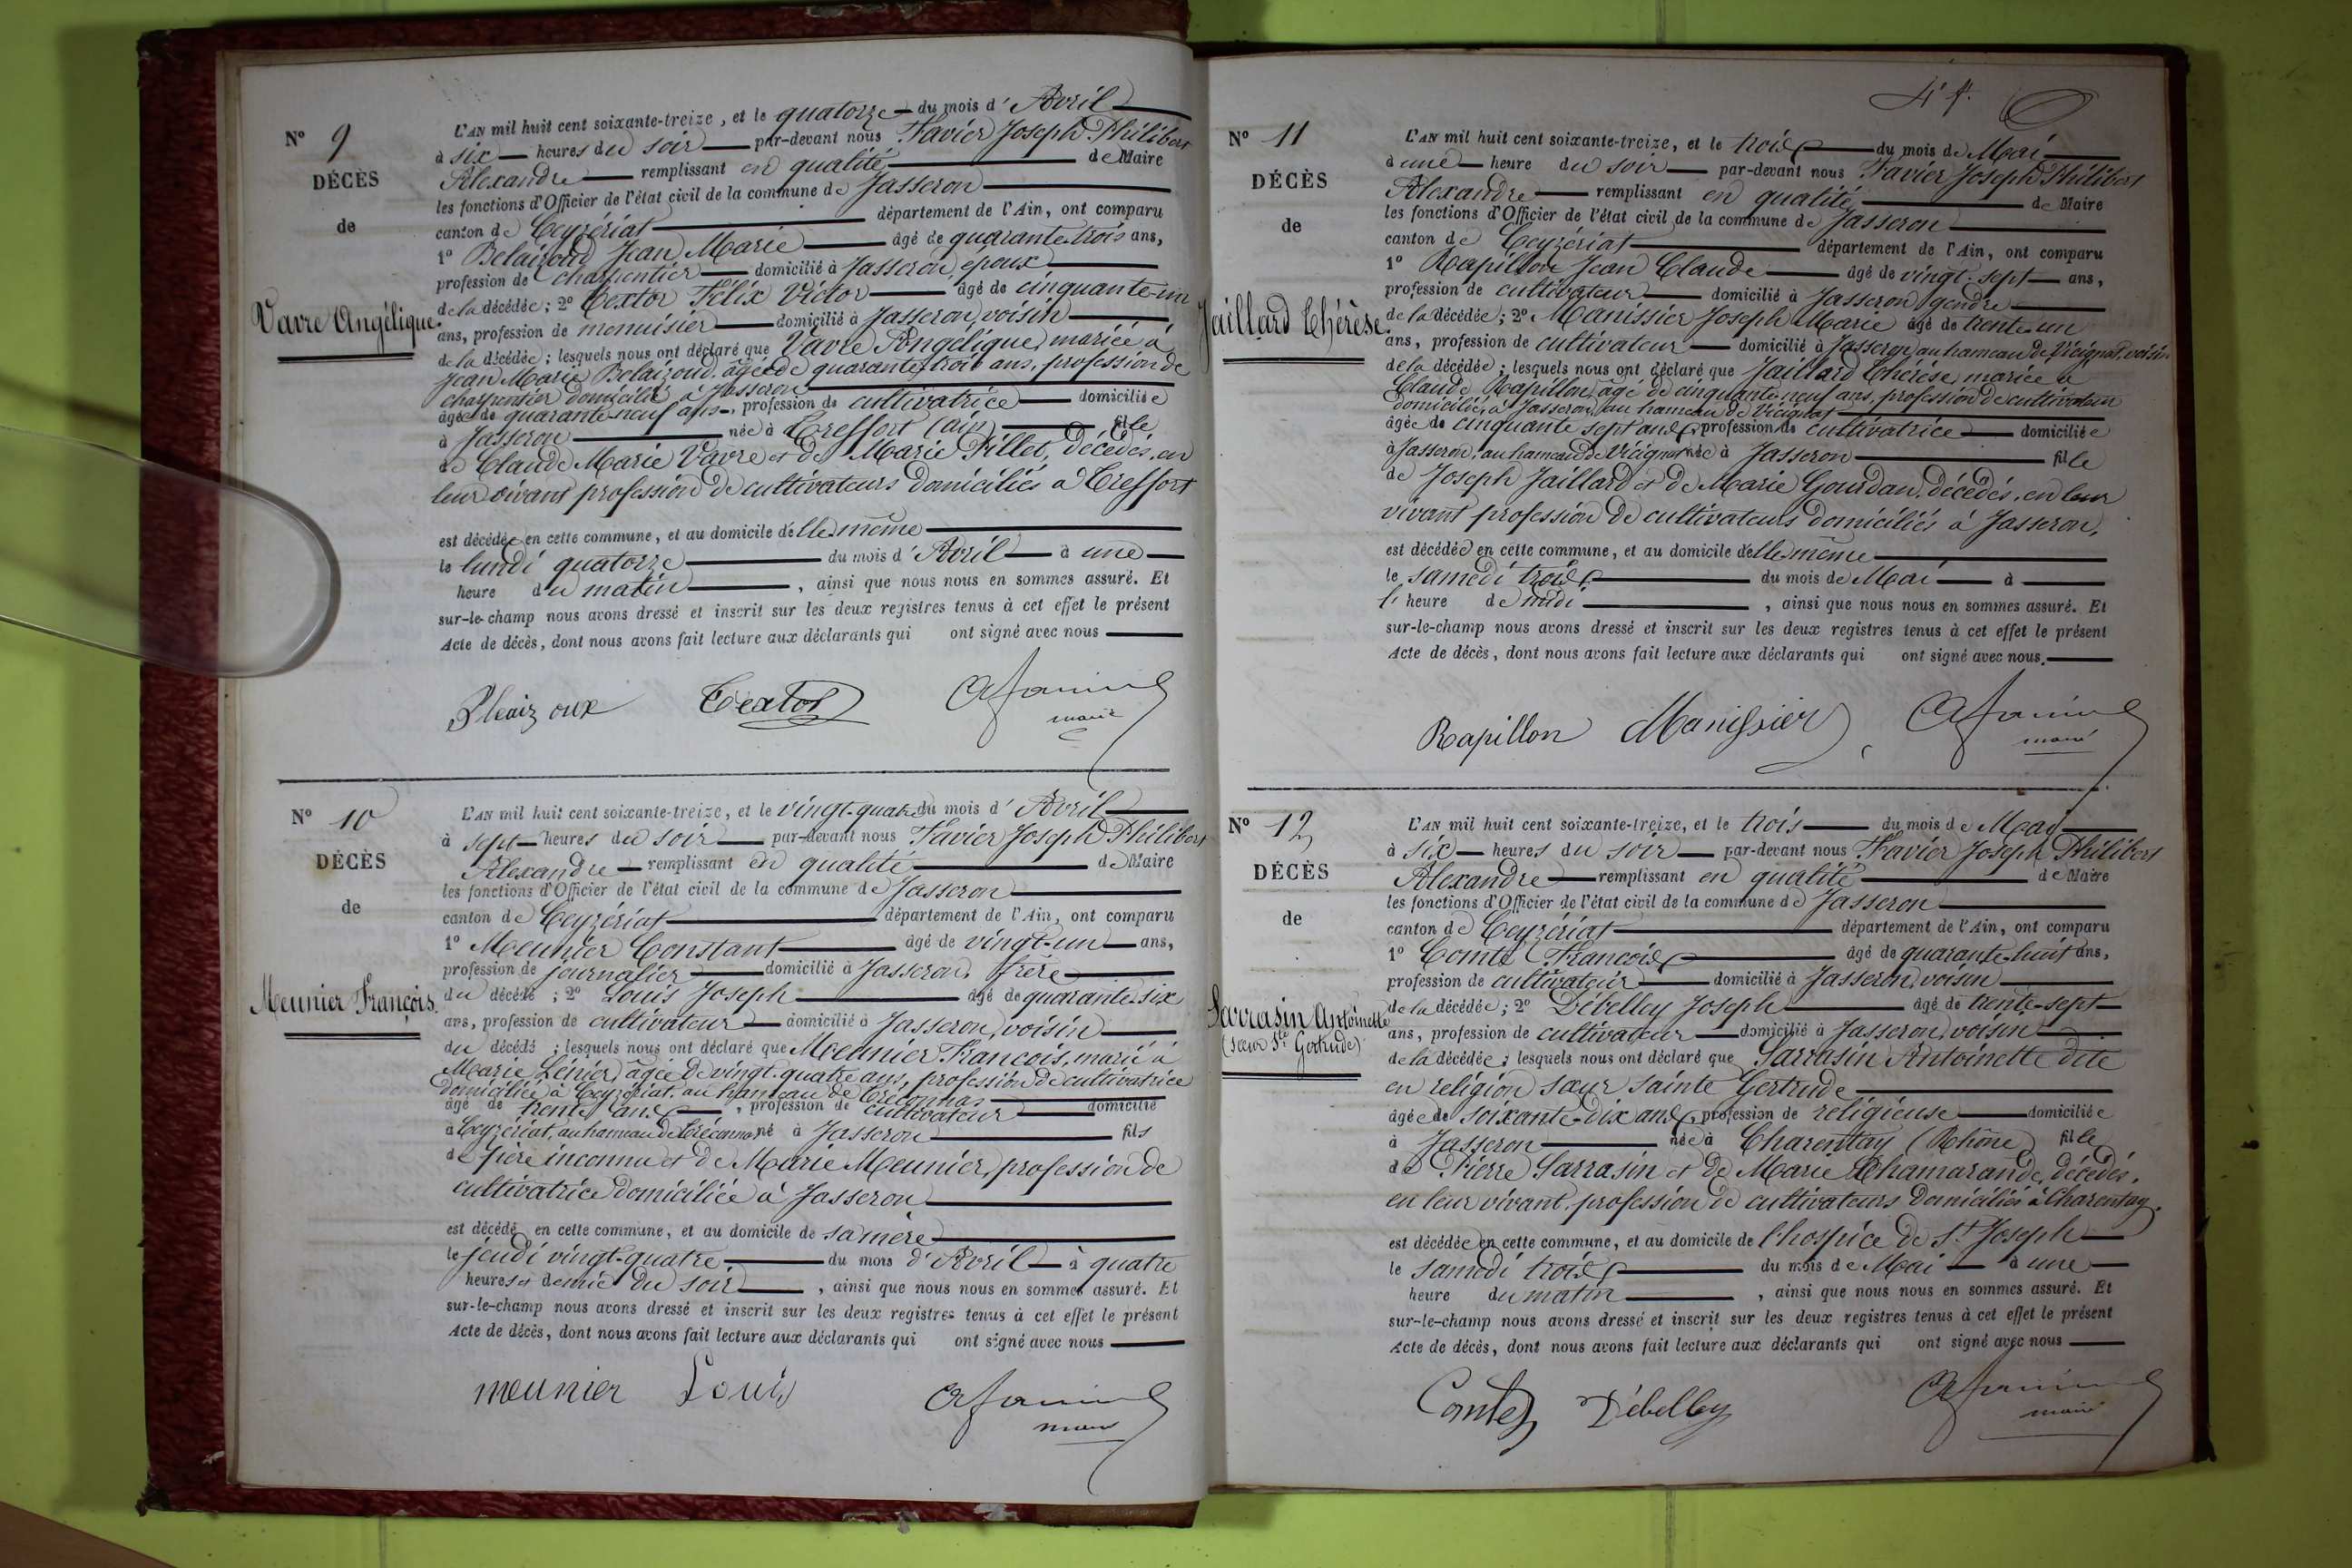 N° 9
DÉCÈS
de
Vavre Angélique.
L'AN mil huit cent soixante-treize, et le quatorze du mois d'Avril
à six heures du soir par-devant nous Favier Joseph Philibert
Alexandre remplissant en qualité de Maire
les fonctions d'Officier de l'état civil de la commune de Jasseron
canton de Ceyzériat département de l'Ain, ont comparu
1° Belaizoud Jean Marie âgé de quarante-trois ans,
profession de charpentier domicilié à Jasseron, époux
de la décédée; 2° Textor Félix Victor âgé de cinquante-un
ans, profession de menuisier domicilié à Jasseron, voisin
de la décédée; lesquels nous ont déclaré que Vavre Angélique, mariée à
Jean Marie Belaizoud, âgé de quarante-trois ans, profession de
charpentier domicilié à Jasseron
âgée de quarante-neuf ans, profession de cultivatrice domiciliée
à Jasseron née à Treffort (ain) fille
de Claude Marie Vavre et de Marie Fillet, décédés, en
leur vivant profession de cultivateurs domiciliés à Treffort
est décédée en cette commune, et au domicile d'elle même
le lundi quatorze du mois d'Avril à une
heure du matin, ainsi que nous nous en sommes assuré. Et
sur-le-champ nous avons dressé et inscrit sur les deux registres tenus à cet effet le présent
Acte de décès, dont nous avons fait lecture aux déclarants qui ont signé avec nous
Textor
maire
N° 10
DÉCÈS
de
Meunier François.
L'AN mil huit cent soixante-treize, et le vingt-quatre du mois d'Avril
à sept heures du soir par-devant nous Favier Joseph Philibert
Alexandre remplissant en qualité de Maire
les fonctions d'Officier de l'état civil de la commune de Jasseron
canton de Ceyzériat département de l'Ain, ont comparu
1° Meunier Constant âgé de vingt-un ans,
profession de journalier domicilié à Jasseron, frère
du décédé; 2° Louis Joseph âgé de quarante-six
ans, profession de cultivateur domicilié à Jasseron, voisin
du décédé; lesquels nous ont déclaré que Meunier François, marié à
Marie âgée de vingt-quatre ans, profession de cultivatrice
domiciliée à Ceyzériat, au hameau de
âgé de trente ans, profession de cultivateur domicilié
à Ceyzériat, au hameau de né à Jasseron fils
de père inconnu et de Marie Meunier, profession de
cultivatrice domiciliée à Jasseron
est décédé en cette commune, et au domicile de sa mère
le jeudi vingt-quatre du mois d'Avril à quatre
heures et demie du soir, ainsi que nous nous en sommes assuré. Et
sur-le-champ nous avons dressé et inscrit sur les deux registres tenus à cet effet le présent
Acte de décès, dont nous avons fait lecture aux déclarants qui ont signé avec nous
meunier Louis
maire
4e f.
N° 11
DÉCÈS
de
Jaillard Thérèse.
L'AN mil huit cent soixante-treize, et le trois du mois de Mai
à une heure du soir par-devant nous Favier Joseph Philibert
Alexandre remplissant en qualité de Maire
les fonctions d'Officier de l'état civil de la commune de Jasseron
canton de Ceyzériat département de l'Ain, ont comparu
1° Rapillon Jean Claude âgé de vingt-sept ans,
profession de cultivateur domicilié à Jasseron, gendre
de la décédée; 2° Manissier Joseph Marie âgé de trente-un
ans, profession de cultivateur domicilié à Jasseron, au hameau de Vicignat, voisin
de la décédée; lesquels nous ont déclaré que Jaillard Thérèse, mariée à
Claude Rapillon, âgé de cinquante-neuf ans, profession de cultivateur
domicilié, à Jasseron, au hameau de Vicignat
âgée de cinquante sept ans, profession de cultivatrice domiciliée
à Jasseron, au hameau de Vicignat née à Jasseron fille
de Joseph Jaillard et de Marie Gourdan, décédés, en leur
vivant profession de cultivateurs domiciliés à Jasseron,
est décédée en cette commune, et au domicile d'elle même
le samedi trois du mois de Mai à
l'heure de midi, ainsi que nous nous en sommes assuré. Et
sur-le-champ nous avons dressé et inscrit sur les deux registres tenus à cet effet le présent
Acte de décès, dont nous avons fait lecture aux déclarants qui ont signé avec nous.
Rapillon Manissier
maire
N° 12
DÉCÈS
de
Sarrasin Antoinette
(sœur Ste Gertrude)
L'AN mil huit cent soixante-treize, et le trois du mois de Mai
à six heures du soir par-devant nous Favier Joseph Philibert
Alexandre remplissant en qualité de Maire
les fonctions d'Officier de l'état civil de la commune de Jasseron
canton de Ceyzériat département de l'Ain, ont comparu
1° Comte François âgé de quarante-huit ans,
profession de cultivateur domicilié à Jasseron, voisin
de la décédée; 2° Débelley Joseph âgé de trente-sept
ans, profession de cultivateur domicilié à Jasseron, voisin
de la décédée; lesquels nous ont déclaré que Sarrasin Antoinette dite
en religion sœur sainte Gertrude
âgée de soixante-dix ans, profession de religieuse domiciliée
à Jasseron née à Charentay (Rhône) fille
de Pierre Sarrasin et de Marie Chamarande, décédés,
en leur vivant profession de cultivateurs domiciliés à Charentay.
est décédée en cette commune, et au domicile de l'hospice de St Joseph
le samedi trois du mois de Mai à une
heure du matin, ainsi que nous nous en sommes assuré. Et
sur-le-champ nous avons dressé et inscrit sur les deux registres tenus à cet effet le présent
Acte de décès, dont nous avons fait lecture aux déclarants qui ont signé avec nous
Comte Débelley
maire